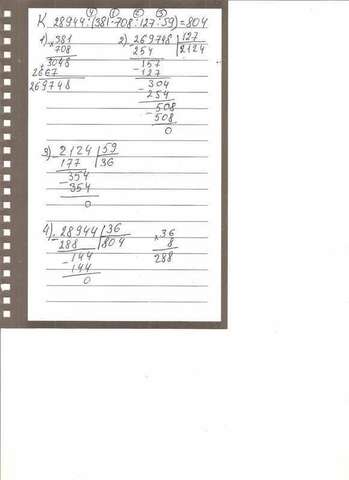 ④ ① ② ③
К 28944:(381·708:127:59)=804
1) ×381
708
+3048
2667
269748
2) 269748 | 127
254 | 2124
-157
-127
-304
254
-508
508
0
3) -2124 | 59
177 | 36
-354
354
0
4) -28944 | 36
288 | 804
-144
144
0
×36
8
288